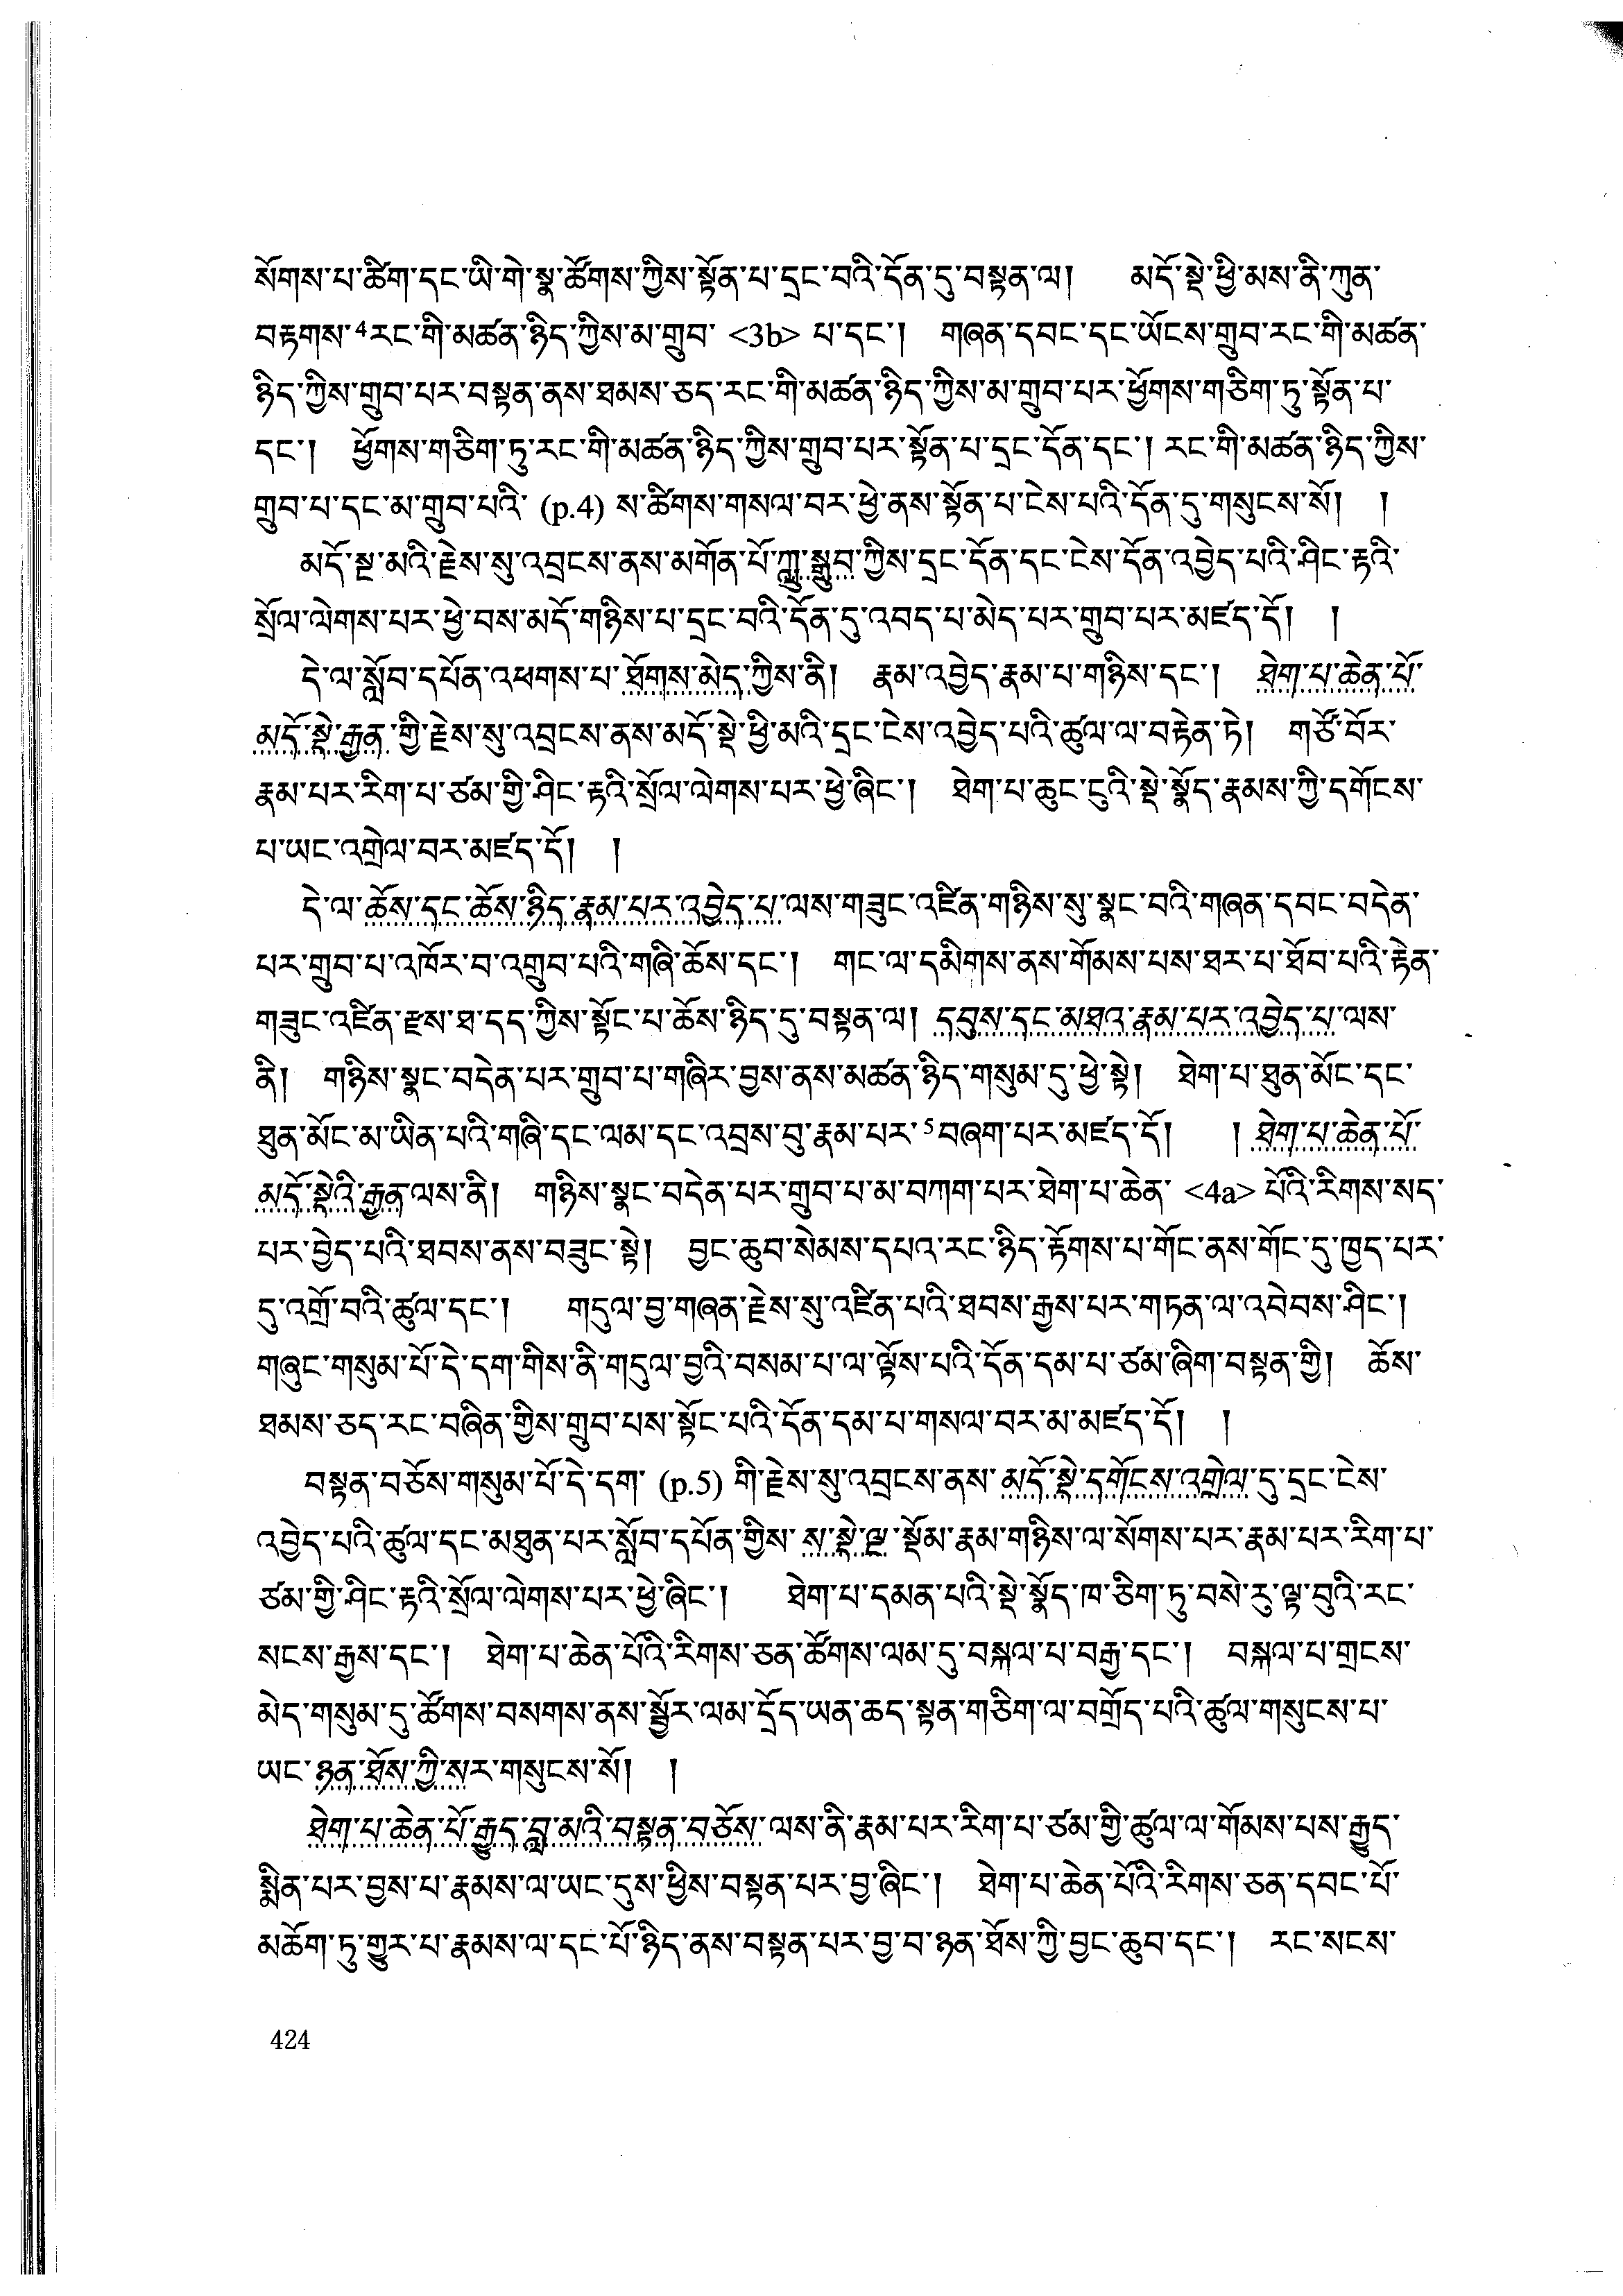 སོགས་པ་ཚིག་དང་ཡི་གེ་སྣ་ཚོགས་ཀྱིས་སྟོན་པ་དྲང་བའི་དོན་དུ་བསྟན་ལ། མདོ་སྡེ་ཕྱི་མས་ནི་ཀུན་
བརྟགས་⁴རང་གི་མཚན་ཉིད་ཀྱིས་མ་གྲུབ་ <3b> པ་དང་། གཞན་དབང་དང་ཡོངས་གྲུབ་རང་གི་མཚན་
ཉིད་ཀྱིས་གྲུབ་པར་བསྟན་ནས་ཐམས་ཅད་རང་གི་མཚན་ཉིད་ཀྱིས་མ་གྲུབ་པར་ཕྱོགས་གཅིག་ཏུ་སྟོན་པ་
དང་། ཕྱོགས་གཅིག་ཏུ་རང་གི་མཚན་ཉིད་ཀྱིས་གྲུབ་པར་སྟོན་པ་དྲང་དོན་དང་། རང་གི་མཚན་ཉིད་ཀྱིས་
གྲུབ་པ་དང་མ་གྲུབ་པའི་ (p.4) ས་ཚིགས་གསལ་བར་ཕྱེ་ནས་སྟོན་པ་ངེས་པའི་དོན་དུ་གསུངས་སོ། །
མདོ་སྔ་མའི་རྗེས་སུ་འབྲངས་ནས་མགོན་པོ་ཀླུ་སྒྲུབ་ཀྱིས་དྲང་དོན་དང་ངེས་དོན་འབྱེད་པའི་ཤིང་རྟའི་
སྲོལ་ལེགས་པར་ཕྱེ་བས་མདོ་གཉིས་པ་དྲང་བའི་དོན་དུ་འབད་པ་མེད་པར་གྲུབ་པར་མཛད་དོ། །
དེ་ལ་སློབ་དཔོན་འཕགས་པ་ཐོགས་མེད་ཀྱིས་ནི། རྣམ་འབྱེད་རྣམ་པ་གཉིས་དང་། ཐེག་པ་ཆེན་པོ་
མདོ་སྡེ་རྒྱན་གྱི་རྗེས་སུ་འབྲངས་ནས་མདོ་སྡེ་ཕྱི་མའི་དྲང་ངེས་འབྱེད་པའི་ཚུལ་ལ་བརྟེན་ཏེ། གཙོ་བོར་
རྣམ་པར་རིག་པ་ཙམ་གྱི་ཤིང་རྟའི་སྲོལ་ལེགས་པར་ཕྱེ་ཞིང་། ཐེག་པ་ཆུང་ངུའི་སྡེ་སྣོད་རྣམས་ཀྱི་དགོངས་
པ་ཡང་འགྲེལ་བར་མཛད་དོ། །
དེ་ལ་ཆོས་དང་ཆོས་ཉིད་རྣམ་པར་འབྱེད་པ་ལས་གཟུང་འཛིན་གཉིས་སུ་སྣང་བའི་གཞན་དབང་བདེན་
པར་གྲུབ་པ་འཁོར་བ་འགྲུབ་པའི་གཞི་ཆོས་དང་། གང་ལ་དམིགས་ནས་གོམས་པས་ཐར་པ་ཐོབ་པའི་རྟེན་
གཟུང་འཛིན་རྫས་ཐ་དད་ཀྱིས་སྟོང་པ་ཆོས་ཉིད་དུ་བསྟན་ལ། དབུས་དང་མཐའ་རྣམ་པར་འབྱེད་པ་ལས་
ནི། གཉིས་སྣང་བདེན་པར་གྲུབ་པ་གཞིར་བྱས་ནས་མཚན་ཉིད་གསུམ་དུ་ཕྱེ་སྟེ། ཐེག་པ་ཐུན་མོང་དང་
ཐུན་མོང་མ་ཡིན་པའི་གཞི་དང་ལམ་དང་འབྲས་བུ་རྣམ་པར་⁵བཞག་པར་མཛད་དོ། ། ཐེག་པ་ཆེན་པོ་
མདོ་སྡེའི་རྒྱན་ལས་ནི། གཉིས་སྣང་བདེན་པར་གྲུབ་པ་མ་བཀག་པར་ཐེག་པ་ཆེན་ <4a> པོའི་རིགས་སད་
པར་བྱེད་པའི་ཐབས་ནས་བཟུང་སྟེ། བྱང་ཆུབ་སེམས་དཔའ་རང་ཉིད་རྟོགས་པ་གོང་ནས་གོང་དུ་ཁྱད་པར་
དུ་འགྲོ་བའི་ཚུལ་དང་། གདུལ་བྱ་གཞན་རྗེས་སུ་འཛིན་པའི་ཐབས་རྒྱས་པར་གཏན་ལ་འབེབས་ཤིང་།
གཞུང་གསུམ་པོ་དེ་དག་གིས་ནི་གདུལ་བྱའི་བསམ་པ་ལ་ལྟོས་པའི་དོན་དམ་པ་ཙམ་ཞིག་བསྟན་གྱི། ཆོས་
ཐམས་ཅད་རང་བཞིན་གྱིས་གྲུབ་པས་སྟོང་པའི་དོན་དམ་པ་གསལ་བར་མ་མཛད་དོ། །
བསྟན་བཅོས་གསུམ་པོ་དེ་དག་ (p.5) གི་རྗེས་སུ་འབྲངས་ནས་མདོ་སྡེ་དགོངས་འགྲེལ་དུ་དྲང་ངེས་
འབྱེད་པའི་ཚུལ་དང་མཐུན་པར་སློབ་དཔོན་གྱིས་ས་སྡེ་ལྔ་སྡོམ་རྣམ་གཉིས་ལ་སོགས་པར་རྣམ་པར་རིག་པ་
ཙམ་གྱི་ཤིང་རྟའི་སྲོལ་ལེགས་པར་ཕྱེ་ཞིང་། ཐེག་པ་དམན་པའི་སྡེ་སྣོད་ཁ་ཅིག་ཏུ་བསེ་རུ་ལྟ་བུའི་རང་
སངས་རྒྱས་དང་། ཐེག་པ་ཆེན་པོའི་རིགས་ཅན་ཚོགས་ལམ་དུ་བསྐལ་པ་བརྒྱ་དང་། བསྐལ་པ་གྲངས་
མེད་གསུམ་དུ་ཚོགས་བསགས་ནས་སྦྱོར་ལམ་དྲོད་ཡན་ཆད་སྟན་གཅིག་ལ་བགྲོད་པའི་ཚུལ་གསུངས་པ་
ཡང་ཉན་ཐོས་ཀྱི་སར་གསུངས་སོ། །
ཐེག་པ་ཆེན་པོ་རྒྱུད་བླ་མའི་བསྟན་བཅོས་ལས་ནི་རྣམ་པར་རིག་པ་ཙམ་གྱི་ཚུལ་ལ་གོམས་པས་རྒྱུད་
སྨིན་པར་བྱས་པ་རྣམས་ལ་ཡང་དུས་ཕྱིས་བསྟན་པར་བྱ་ཞིང་། ཐེག་པ་ཆེན་པོའི་རིགས་ཅན་དབང་པོ་
མཆོག་ཏུ་གྱུར་པ་རྣམས་ལ་དང་པོ་ཉིད་ནས་བསྟན་པར་བྱ་བ་ཉན་ཐོས་ཀྱི་བྱང་ཆུབ་དང་། རང་སངས་
424